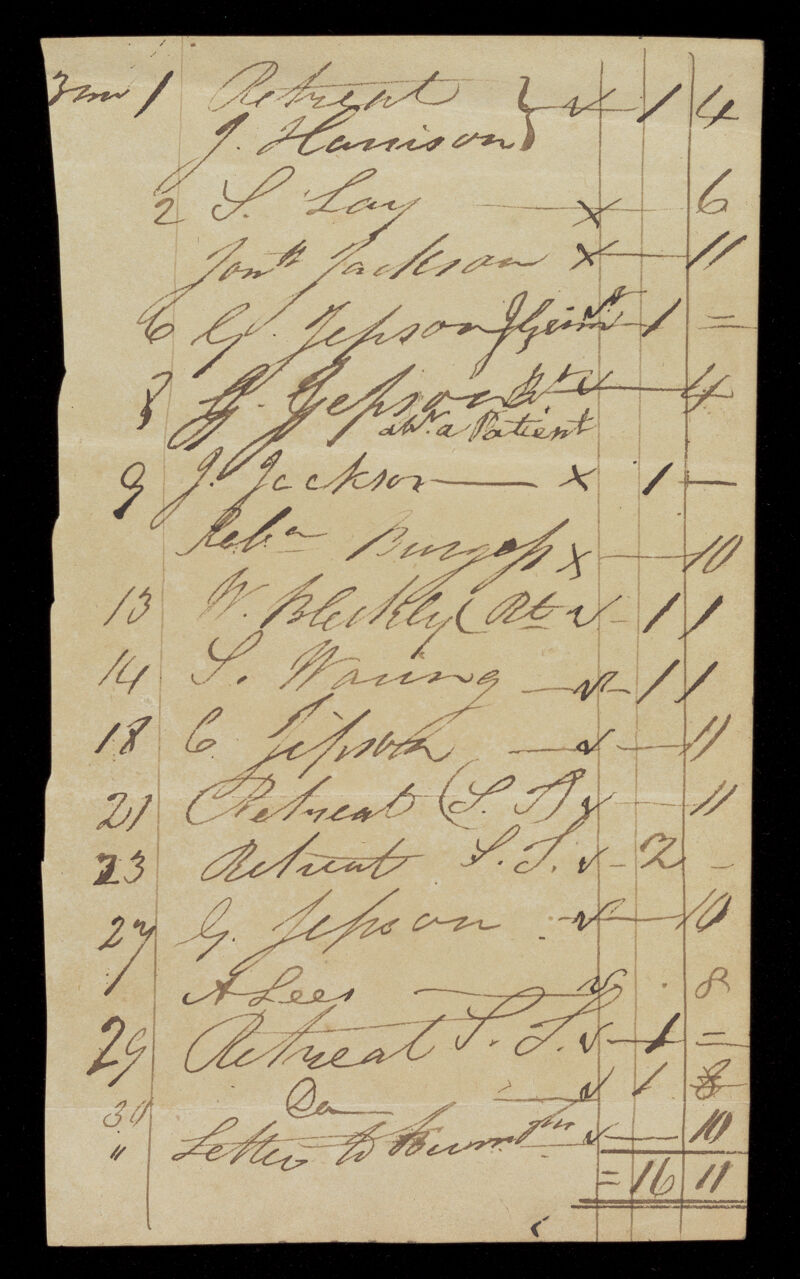 3 mo 1 Retreat } ✓ 1 4
J. Harrison
2 S. Lay — x — 6
Jonn Jackson x — 11
6 G. Jepson ✓ 1 =
8 G. Jepson Rt ✓ — 4
abt. a Patient
9 J. Jackson — x 1 —
Reba Burgess x — 10
13 W. Bleckly (Rt ✓ - 1 1
14 S. Waring — ✓ - 1 1
18 G Jepson — ✓ — 11
21 Retreat (S. T) ✓ — 11
23 Retreat S. T. ✓ - 2 -
27 G. Jepson ✓ — 10
A Lees — ✓ . 8
29 Retreat S. T. ✓ — 1 =
30 Do — ✓ 1 8
" Letter to ✓ — 10
= 16 11